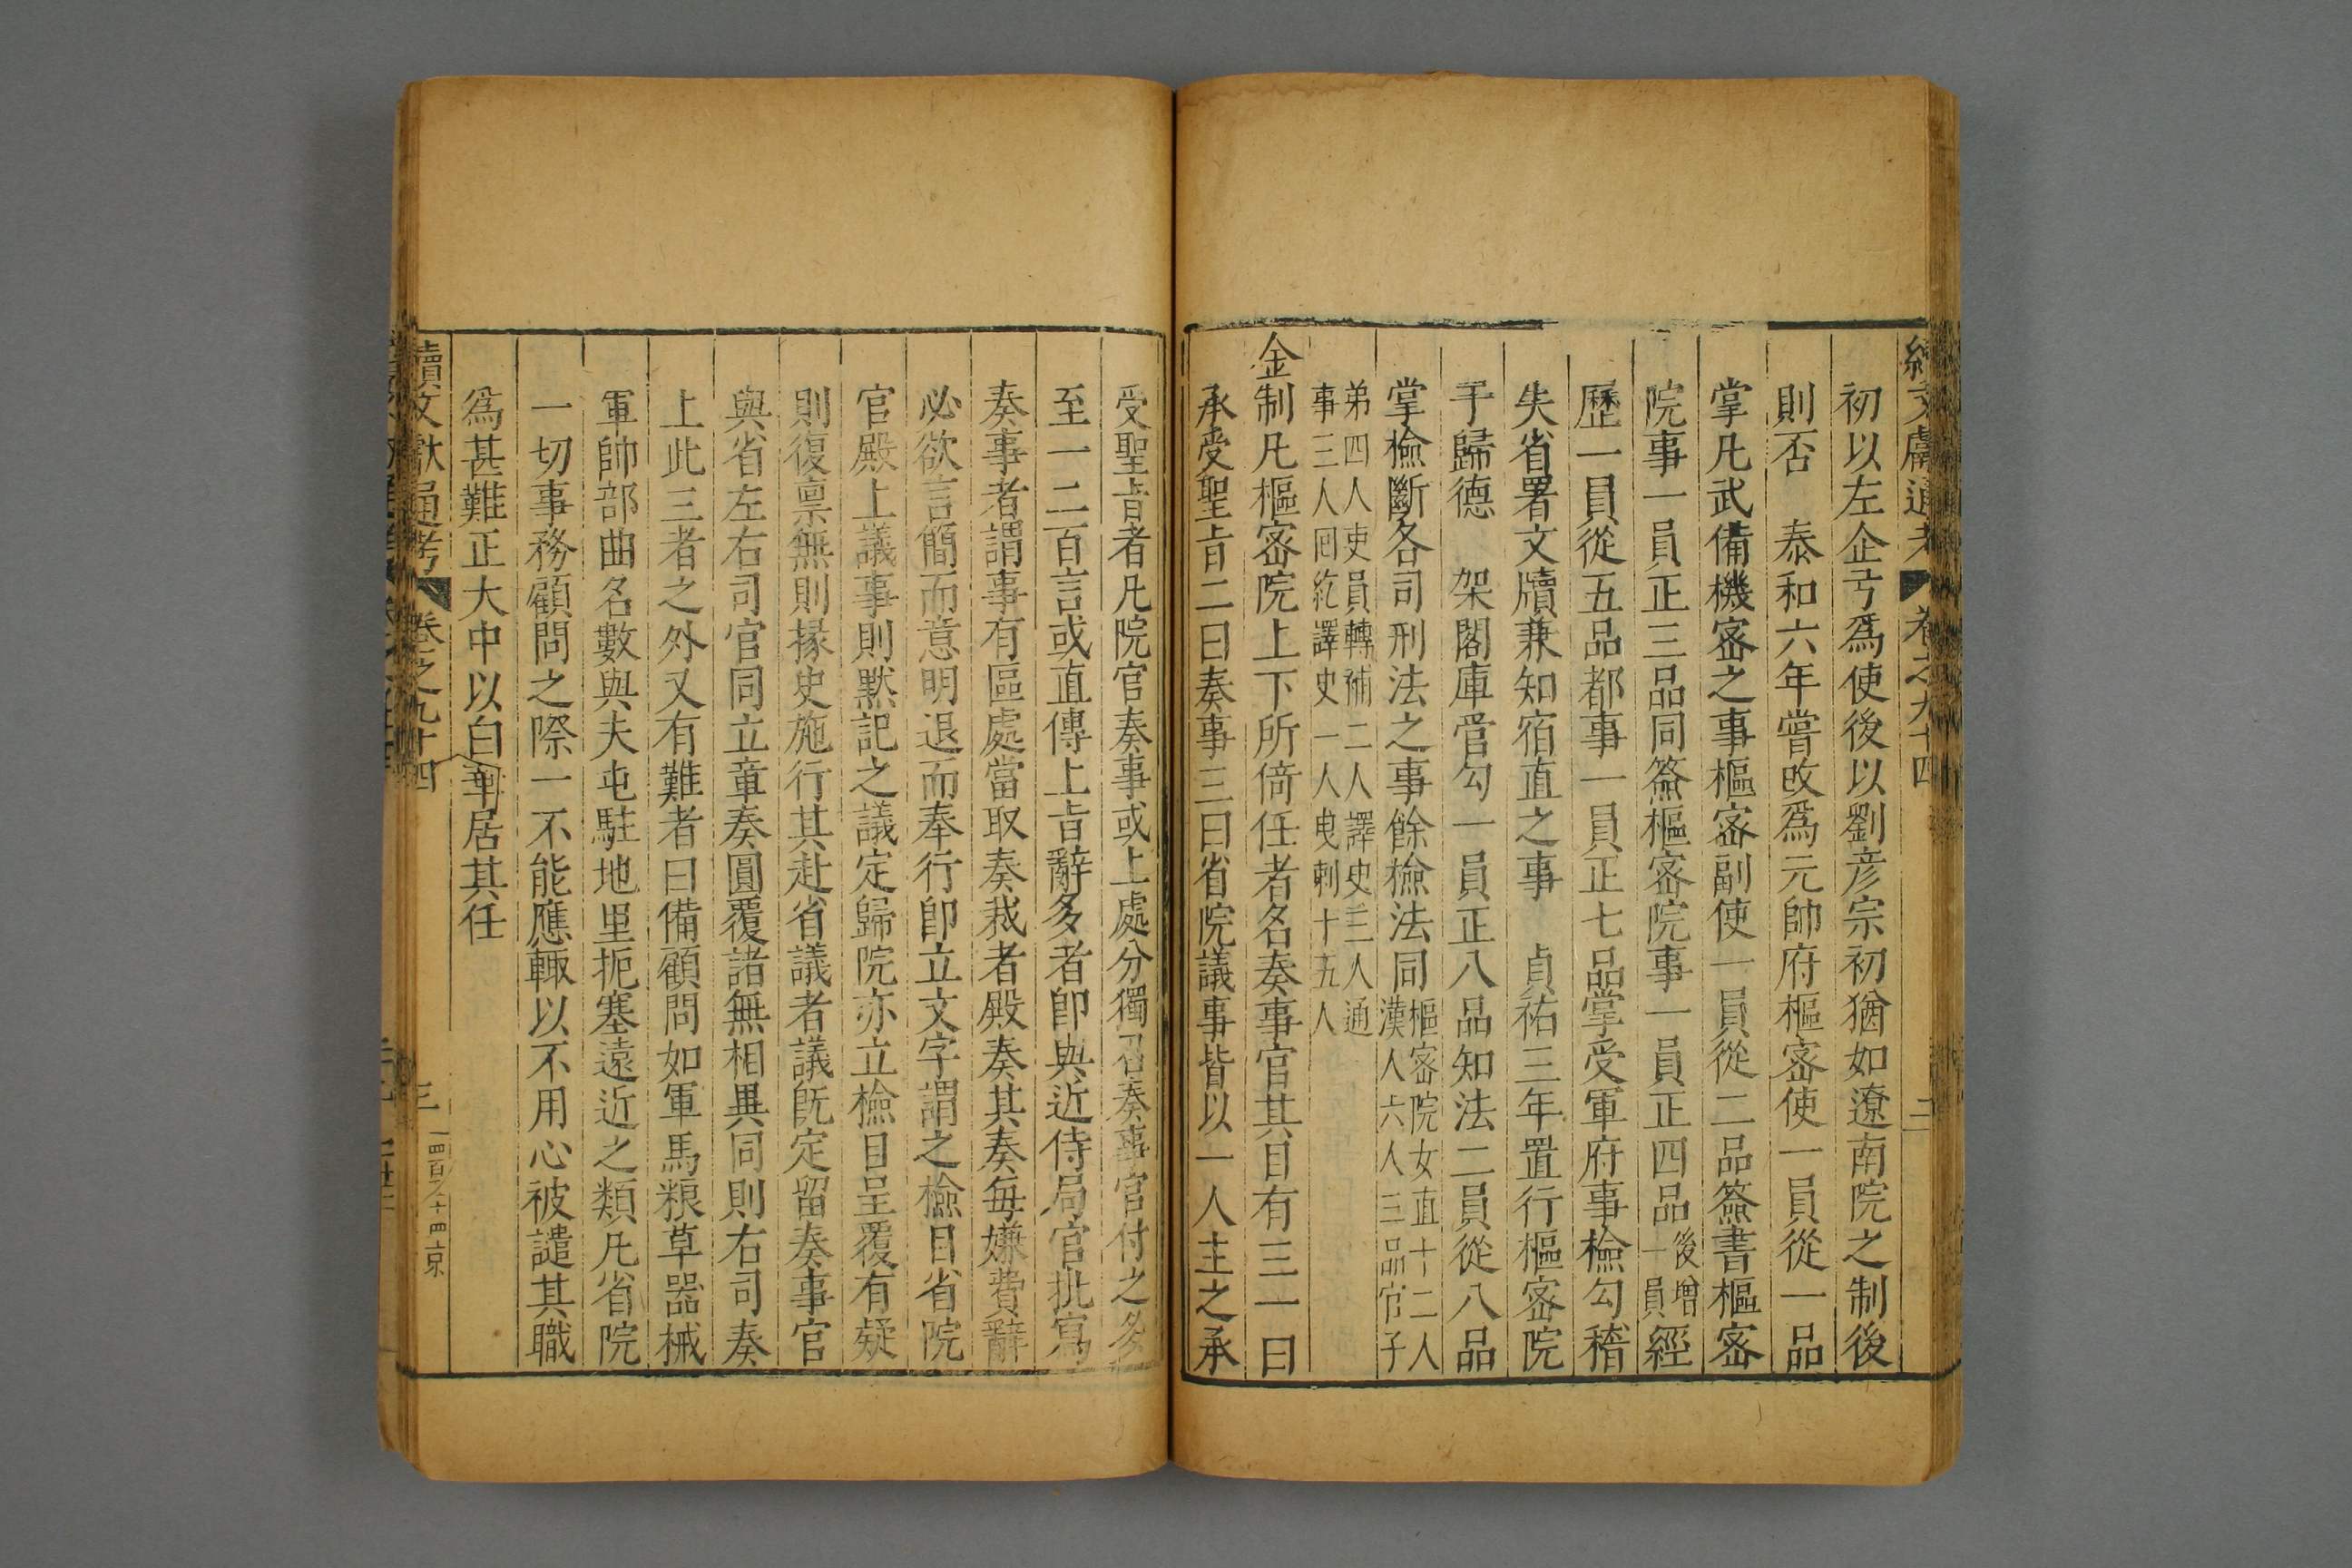 續文獻通考 卷之九十四 二
初以左企弓爲使後以劉彦宗初猶如遼南院之制後
則否 泰和六年嘗改爲元帥府樞密使一員從一品
掌凡武備機密之事樞密副使一員從二品簽書樞密
院事一員正三品同簽樞密院事一員正四品後增一員經
歷一員從五品都事一員正七品掌受軍府事檢勾稽
失省署文牘兼知宿直之事 貞祐三年置行樞密院
于歸德 架閣庫管勾一員正八品知法二員從八品
掌檢斷各司刑法之事餘檢法同樞密院女直十二人漢人六人三品官子
弟四人吏員轉補二人譯史三人通事三人回紇譯史一人曳剌十五人
金制凡樞密院上下所倚任者名奏事官其目有三一曰
承受聖旨二曰奏事三曰省院議事皆以一人主之承
受聖旨者凡院官奏事或上處分獨召奏事官付之多
至一二百言或直傳上旨辭多者卽與近侍局官批寫
奏事者謂事有區處當取奏裁者殿奏其奏每嫌費辭
必欲言簡而意明退而奉行卽立文字謂之檢目省院
官殿上議事則默記之議定歸院亦立檢目呈覆有疑
則復禀無則掾史施行其赴省議者議旣定留奏事官
與省左右司官同立章奏圓覆諸無相異同則右司奏
上此三者之外又有難者曰備顧問如軍馬粮草器械
軍帥部曲名數與夫屯駐地里扼塞遠近之類凡省院
一切事務顧問之際一不能應輒以不用心被譴其職
爲甚難正大中以白華居其任
續文獻通考 卷之九十四 三 四百六十四 京